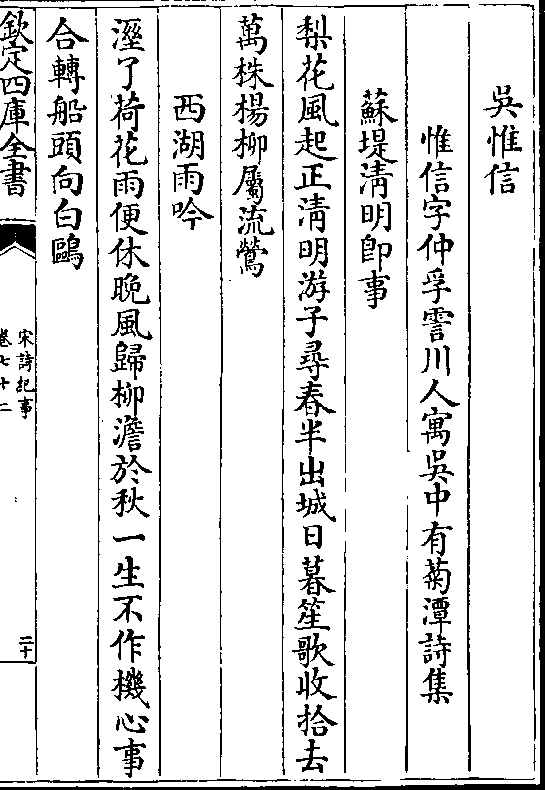 吳惟信
惟信字仲孚霅川人寓吳中有菊潭詩集
蘇堤淸明卽事
梨花風起正淸明游子尋春半出城日暮笙歌收拾去
萬株楊柳屬流鶯
西湖雨吟
溼了荷花雨便休晚風歸柳澹於秋一生不作機心事
合轉船頭向白鷗
欽定四庫全書
宋詩紀事
卷七十二
二十